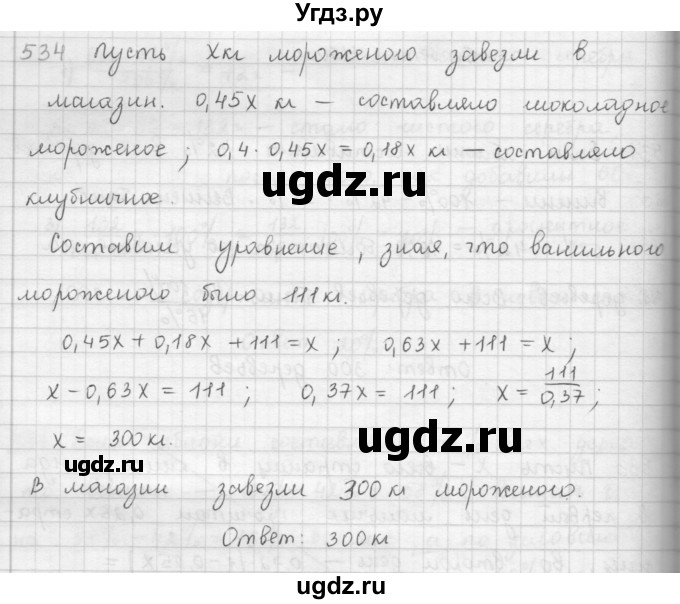 Угдз.ру
534 Пусть Xкг мороженого завезли в
магазин. 0,45X кг — составляло шоколадное
мороженое; 0,4 · 0,45x = 0,18x кг — составляло
клубничное.
ugdz.ru
Составим уравнение, зная, что ванильного
мороженого было 111кг.
0,45X + 0,18X + 111 = X ; 0,63X + 111 = X ;
X - 0,63X = 111 ; 0,37X = 111 ; X = 111/0,37 ;
x = 300кг.
ugdz.ru
ugdz.ru
В магазин завезли 300кг мороженого.
Ответ: 300кг
ugdz.ru
ugdz.ru